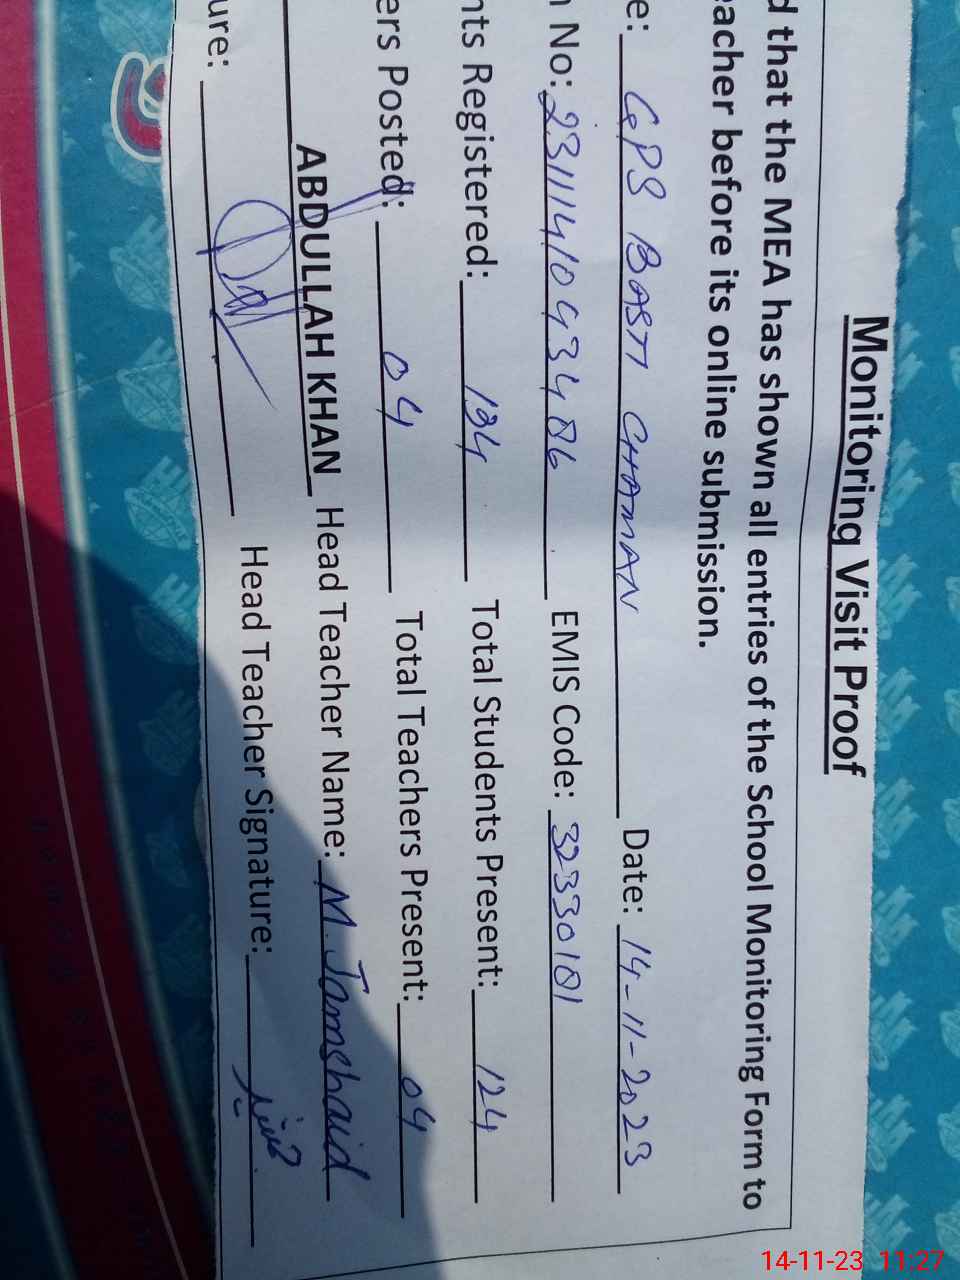 Monitoring Visit Proof
d that the MEA has shown all entries of the School Monitoring Form to
eacher before its online submission.
e: GPS BASTI CHAMAN Date: 14-11-2023
n No: 23111410993486 EMIS Code: 32330101
nts Registered: 194 Total Students Present: 124
ers Posted: 04 Total Teachers Present: 04
ABDULLAH KHAN Head Teacher Name: M. Jamshaid
ure: Head Teacher Signature:
14-11-23 11:27